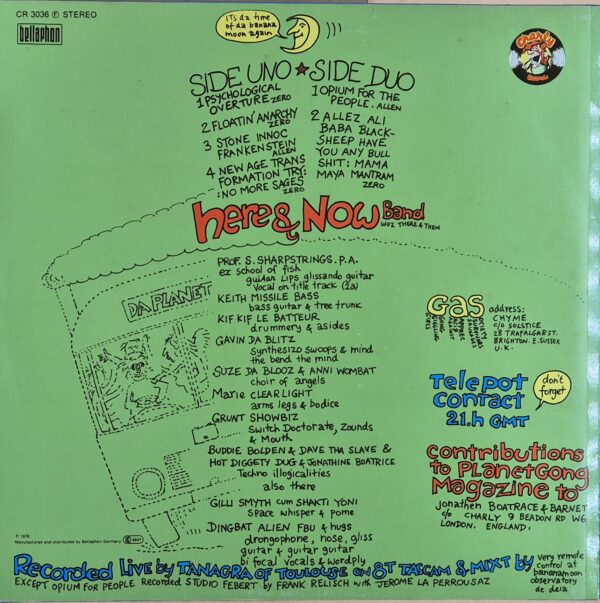 CR 3036 Ⓟ STEREO
bellaphon
iTs da time
of da banana
moon again
Charly
Records
SIDE UNO ★ SIDE DUO
1 PSYCHOLOGICAL
OVERTURE ZERO
2 FLOATIN' ANARCHY
ZERO
3 STONE INNOC
FRANKENSTEIN
ALLEN
4 NEW AGE TRANS
FORMATION TRY:
:NO MORE SAGES
ZERO
1 OPIUM FOR THE
PEOPLE. ALLEN
2 ALLEZ ALI
BABA BLACK-
SHEEP HAVE
YOU ANY BULL
SHIT: MAMA
MAYA MANTRAM
ZERO
here & NOW Band
WUZ THERE & THEN
DA PLANET
PROF. S. SHARPSTRINGS. P.A.
ex school of fish
guidar LIPS glissando guitar
vocal on title track (2a)
KEITH MISSILE BASS
bass guitar & tree trunk
KIF KIF LE BATTEUR
drummery & asides
GAVIN DA BLITZ
Synthesizo swoops & mind
the bend the mind
SUZE DA BLOOZ & ANNI WOMBAT
choir of angels
Marie CLEARLIGHT
arms legs & bodice
GRUNT SHOWBIZ
Switch Doctorate, Zounds
& Mouth
BUDDIE BOLDEN & DAVE THA SLAVE &
HOT DIGGETY DUG & JONATHINE BOATRICE
Techno illogicalities
also there
GILLI SMYTH cum SHAKTI YONI
Space whisper & pome
DINGBAT ALIEN FBU & hugs
drongophone, nose, gliss
guitar & guitar guitar
bi focal vocals & wordply
GAS
address:
CHYME
c/o SOLSTICE
28 TRAFALGAR ST.
BRIGHTON. E. SUSSEX
U.K.
Telepot
contact
21.h GMT
don't
forget
contributions
to PLANETGONG
Magazine to
Jonathen BOATRACE & BARNET
c/o CHARLY 9 BEADON RD W6
LONDON. ENGLAND.
℗ 1978
Manufactured and distributed by Bellaphon Germany
Recorded Live by TANAGRA OF TOULOUSE ON 8T TASCAM & MIXT by
very remote
control at
bananamoon
observatory
de deia
EXCEPT OPIUM FOR PEOPLE Recorded STUDIO FEBERT by FRANK RELISCH with JEROME LA PERROUSAZ